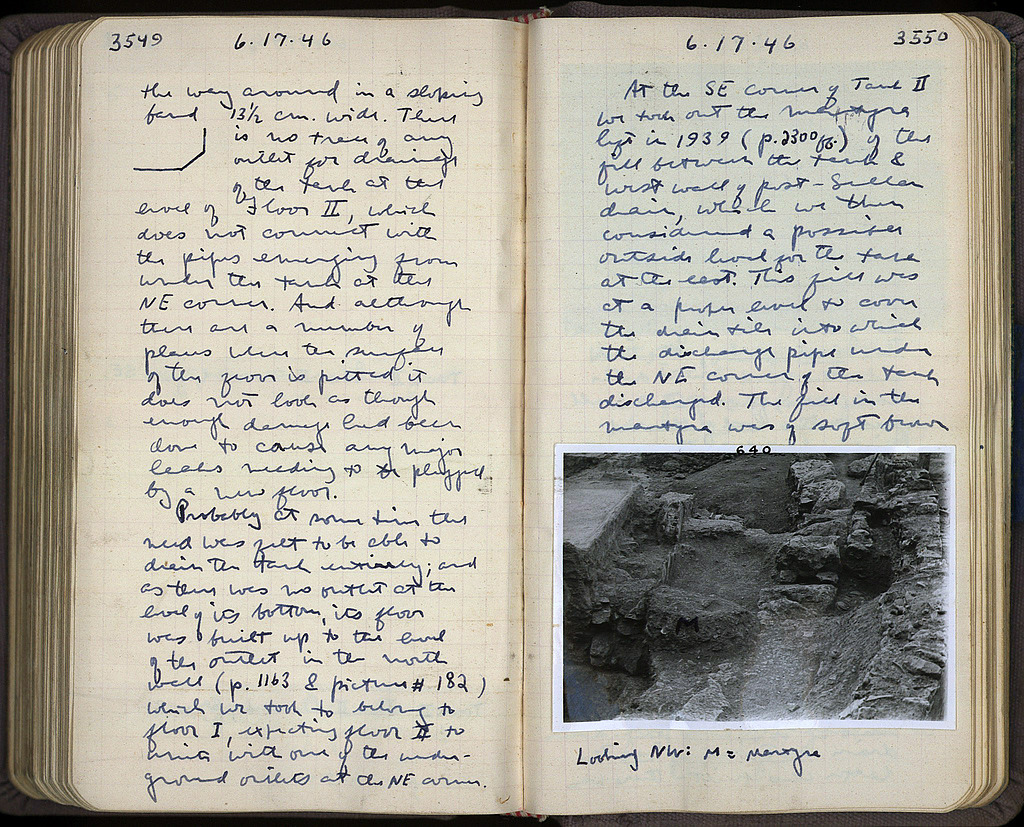 3549
6.17.46
the way around in a sloping
band 13½ cm. wide. There
is no trace of any
outlet for drainage
of the tank at the
level of Floor II, which
does not connect with
the pipes emerging from
under the tank at the
NE corner. And although
there are a number of
places where the surface
of the floor is pitted it
does not look as though
enough damage had been
done to cause any major
leaks needing to be plugged
by a new floor.
Probably at some time the
need was felt to be able to
drain the tank entirely; and
as there was no outlet at the
level of its bottom, its floor
was built up to the level
of the outlet in the north
wall (p. 1163 & picture # 182)
which we took to belong to
floor I, expecting floor II to
unite with one of the under-
ground outlets at the NE corner.
6.17.46
3550
At the SE corner of Tank II
we took out the martyra
left in 1939 (p. 2300 ff.) of the
fill between the tank &
west wall of post-Sullan
drain, which we then
considered a possible
outside level for the tank
at the east. This fill was
at a proper level to cover
the drain tile into which
the discharge pipe under
the NE corner of the tank
discharged. The fill in the
martyra was of soft brown
640
M
Looking NW: M = martyra